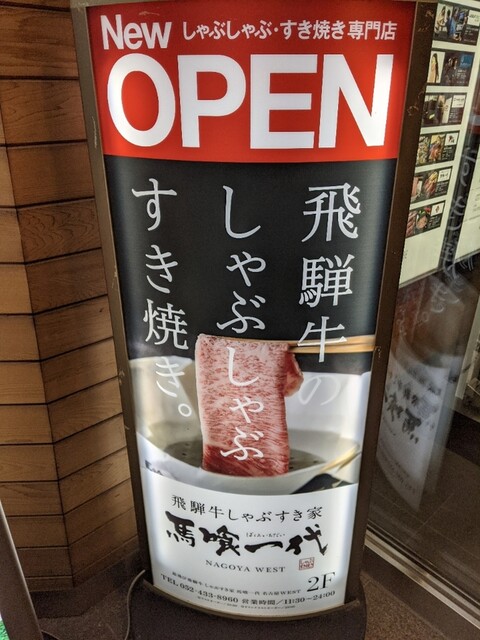 New しゃぶしゃぶ・すき焼き専門店
OPEN
飛騨牛の
しゃぶしゃぶ
すき焼き。
飛騨牛しゃぶすき家
ばくろいちだい
馬喰一代
NAGOYA WEST
2F
TEL 052-433-8960 営業時間/11:30~24:00